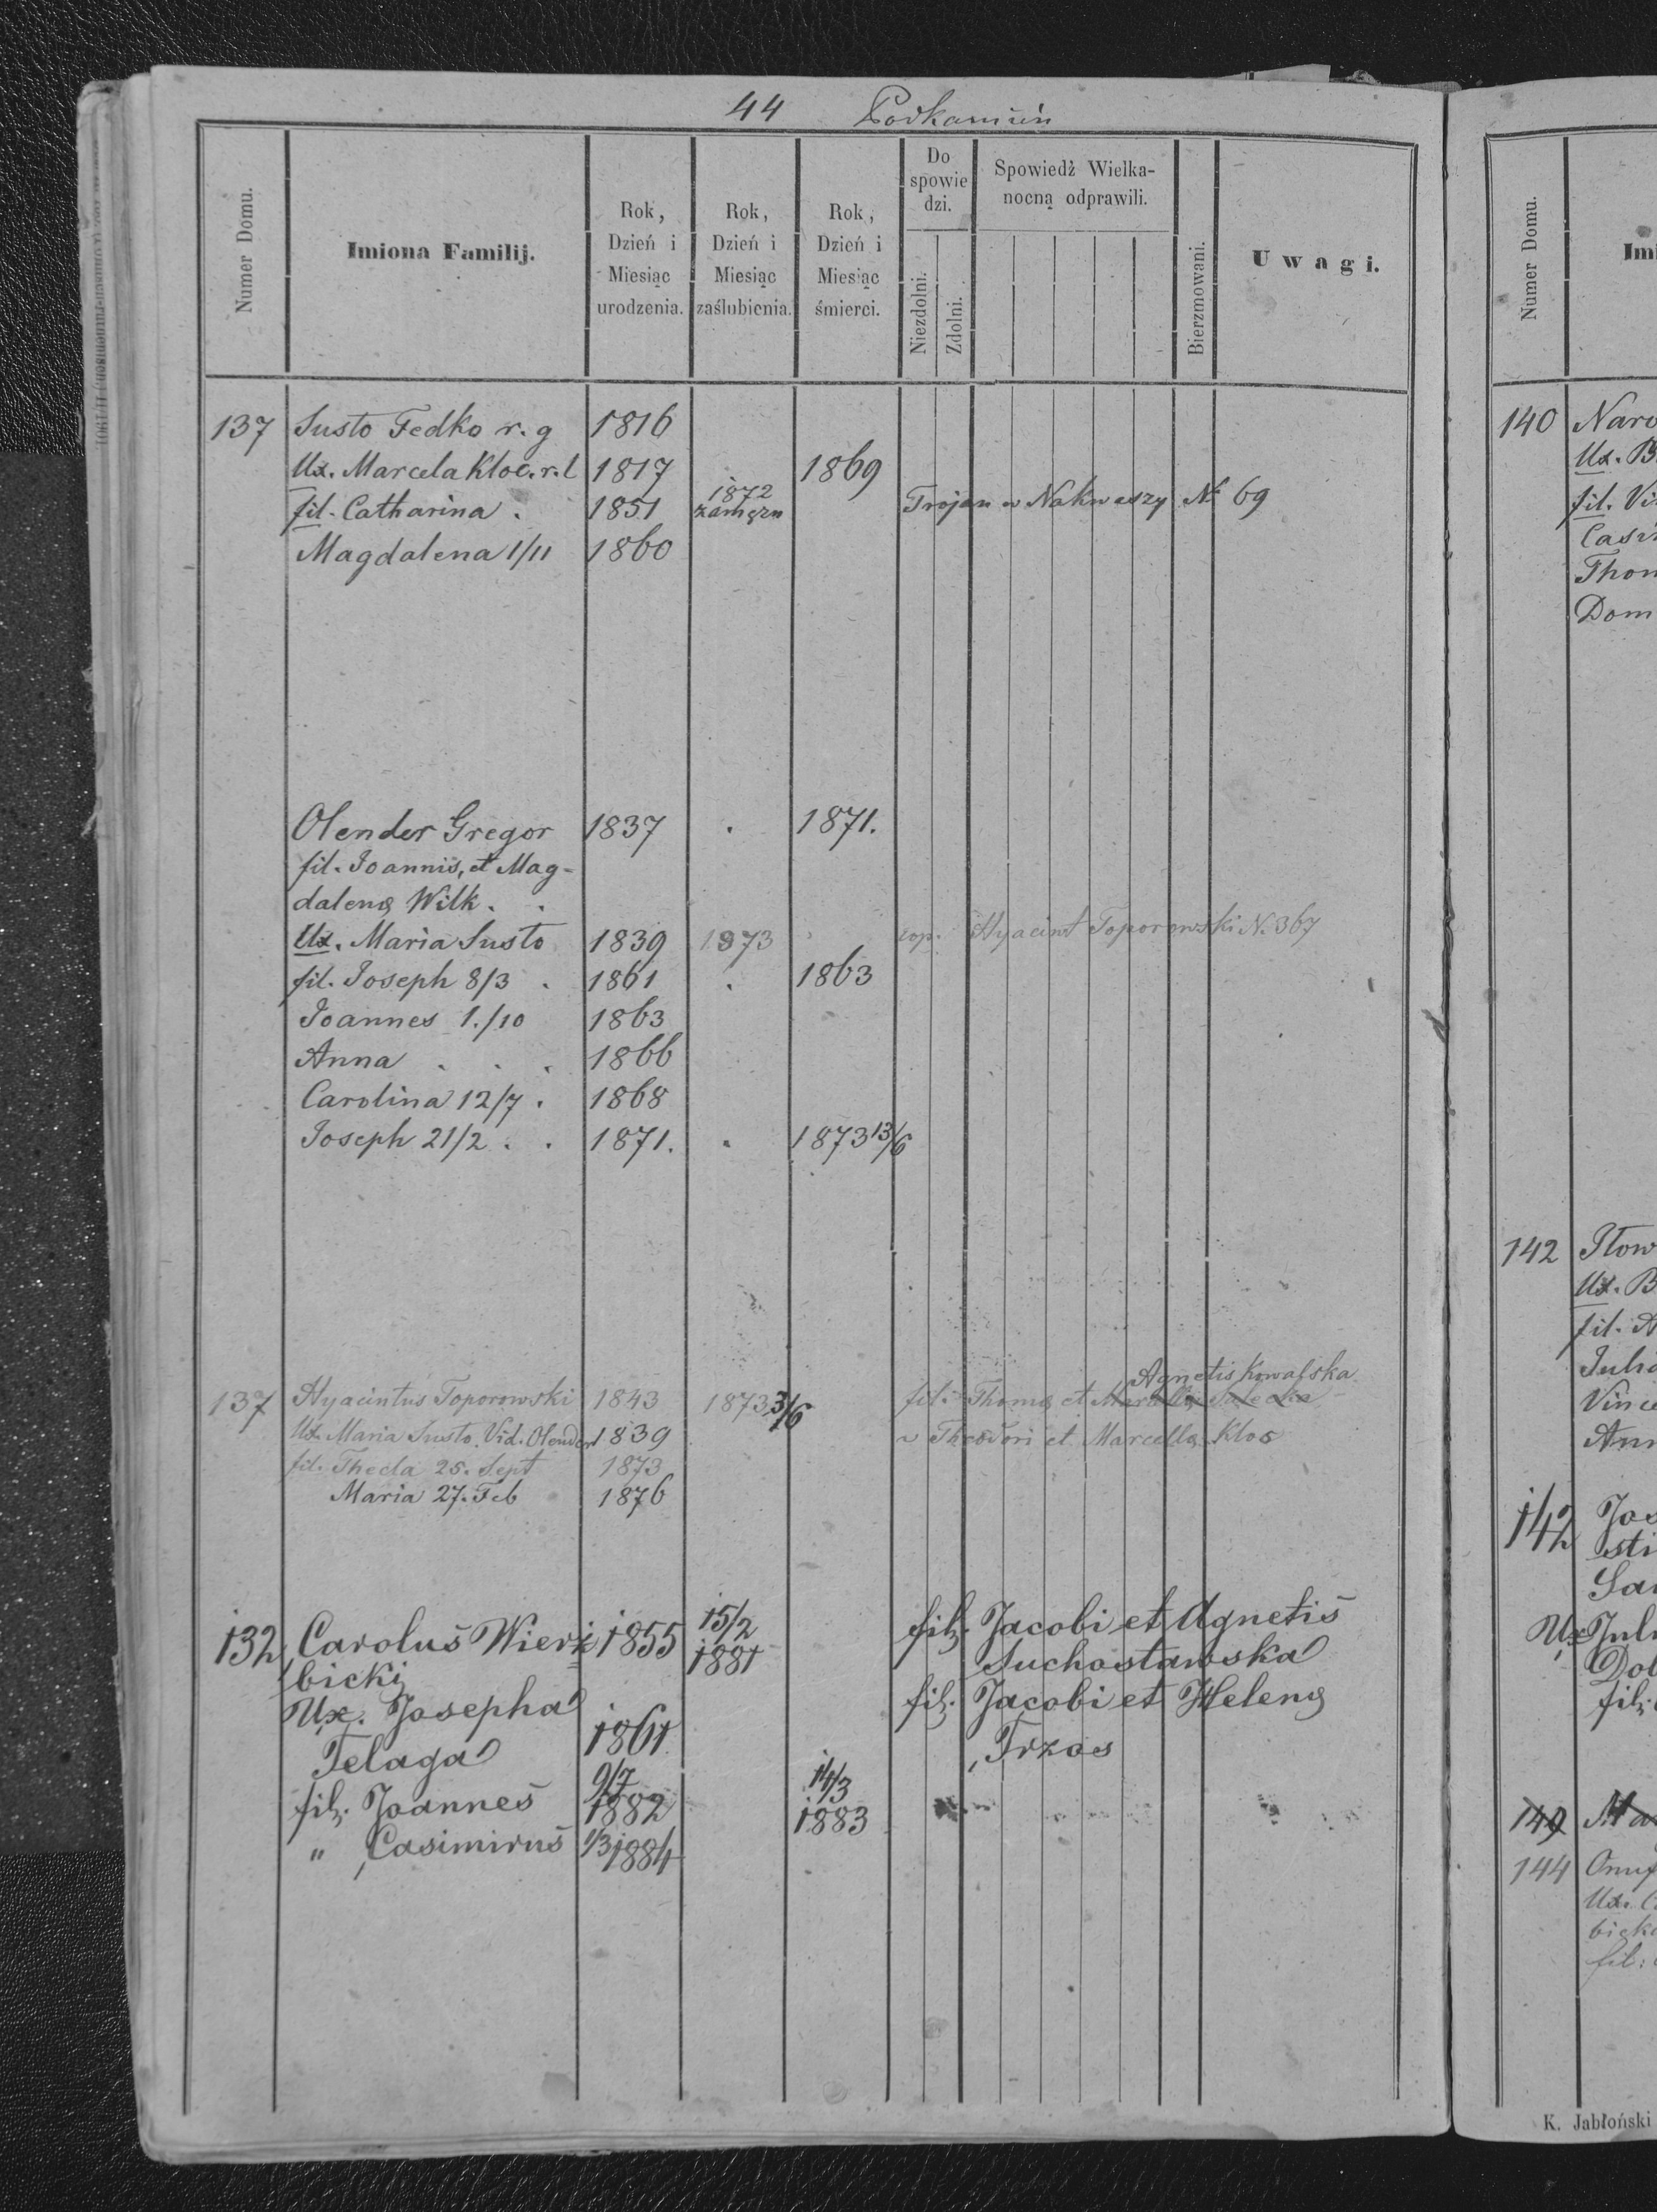 44 Podkamień
Numer Domu.
Imiona Familij.
Rok, Dzień i Miesiąc urodzenia.
Rok, Dzień i Miesiąc zaślubienia.
Rok, Dzień i Miesiąc śmierci.
Do spowie dzi.
Niezdolni.
Zdolni.
Spowiedź Wielka-
nocną odprawili.
Bierzmowani.
Uwagi.
137 Susto Fedko r. g 1816
Ux. Marcela Kloc. r. l 1817 1869
fil. Catharina . 1851 1872 zamężn Trojan w Nakwaszy № 69
Magdalena 1/11 1860
Olender Gregor 1837 . 1871.
fil. Joannis, et Mag-
dalenę Wilk . .
Ux. Maria Susto 1839 1873 cop. Hyacint Toporowski N. 367
fil. Joseph 8/3 . 1861 . 1863
Joannes 1./10 1863
Anna . . . 1866
Carolina 12/7 . 1868
Joseph 21/2 . . 1871. . 1873 13/6
Agnetis Kowalska
137 Hyacintus Toporowski 1843 1873 3/6 fil. Thomę et Marcellę
Ux. Maria Susto. Vid. Olender 1839 ~ Theodori et Marcellę Klos
fil. Thecla 25. Sept 1873
Maria 27. Feb 1876
132 Carolus Wierz 1855 15/2 1881 fil. Jacobi et Agnetis
bicki Suchostawska
Ux. Josepha fil. Jacobi et Helenę
Telaga 1861 Trzos
fil. Joannes 9/7 1882 14/3 1883
" Casimirus 1/3 1884
Numer Domu.
Imi
140 Naro
Ux. B
fil. Vi
Casi
Thom
Dom
142 Iłow
Ux. B
fil. A
Julia
Vince
Ann
142 Jos
sti
Sa
Ux Jul
Dob
fil.
149 Ma
144 Onuf
Ux. C
bick
fil:
K. Jabłoński